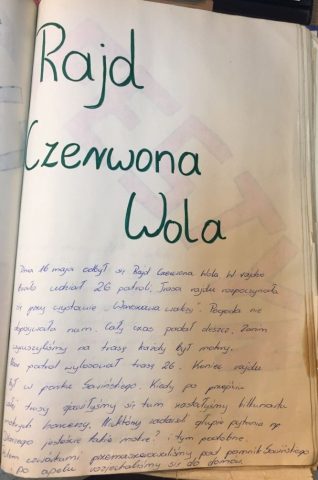 Rajd
Czerwona
Wola
Dnia 16 maja odbył się Rajd Czerwona Wola. W rajdzie
brało udział 26 patroli. Trasa rajdu rozpoczynała
się przy wystawie „Warszawa walczy". Pogoda nie
dopisywała nam. Cały czas padał deszcz. Zanim
wyruszyliśmy na trasę każdy był mokry.
Nasz patrol wylosował trasę 26. Koniec rajdu
był w parku Sowińskiego. Kiedy po przejściu
całej trasy zjawiłyśmy się tam zastałyśmy kilkunastu
mokrych harcerzy. Niektórzy zadawali głupie pytania np
Dlaczego jesteście takie mokre? i tym podobne.
Potem czwórkami przemaszerowaliśmy pod pomnik Sowińskiego
po apelu rozjechaliśmy się do domów.